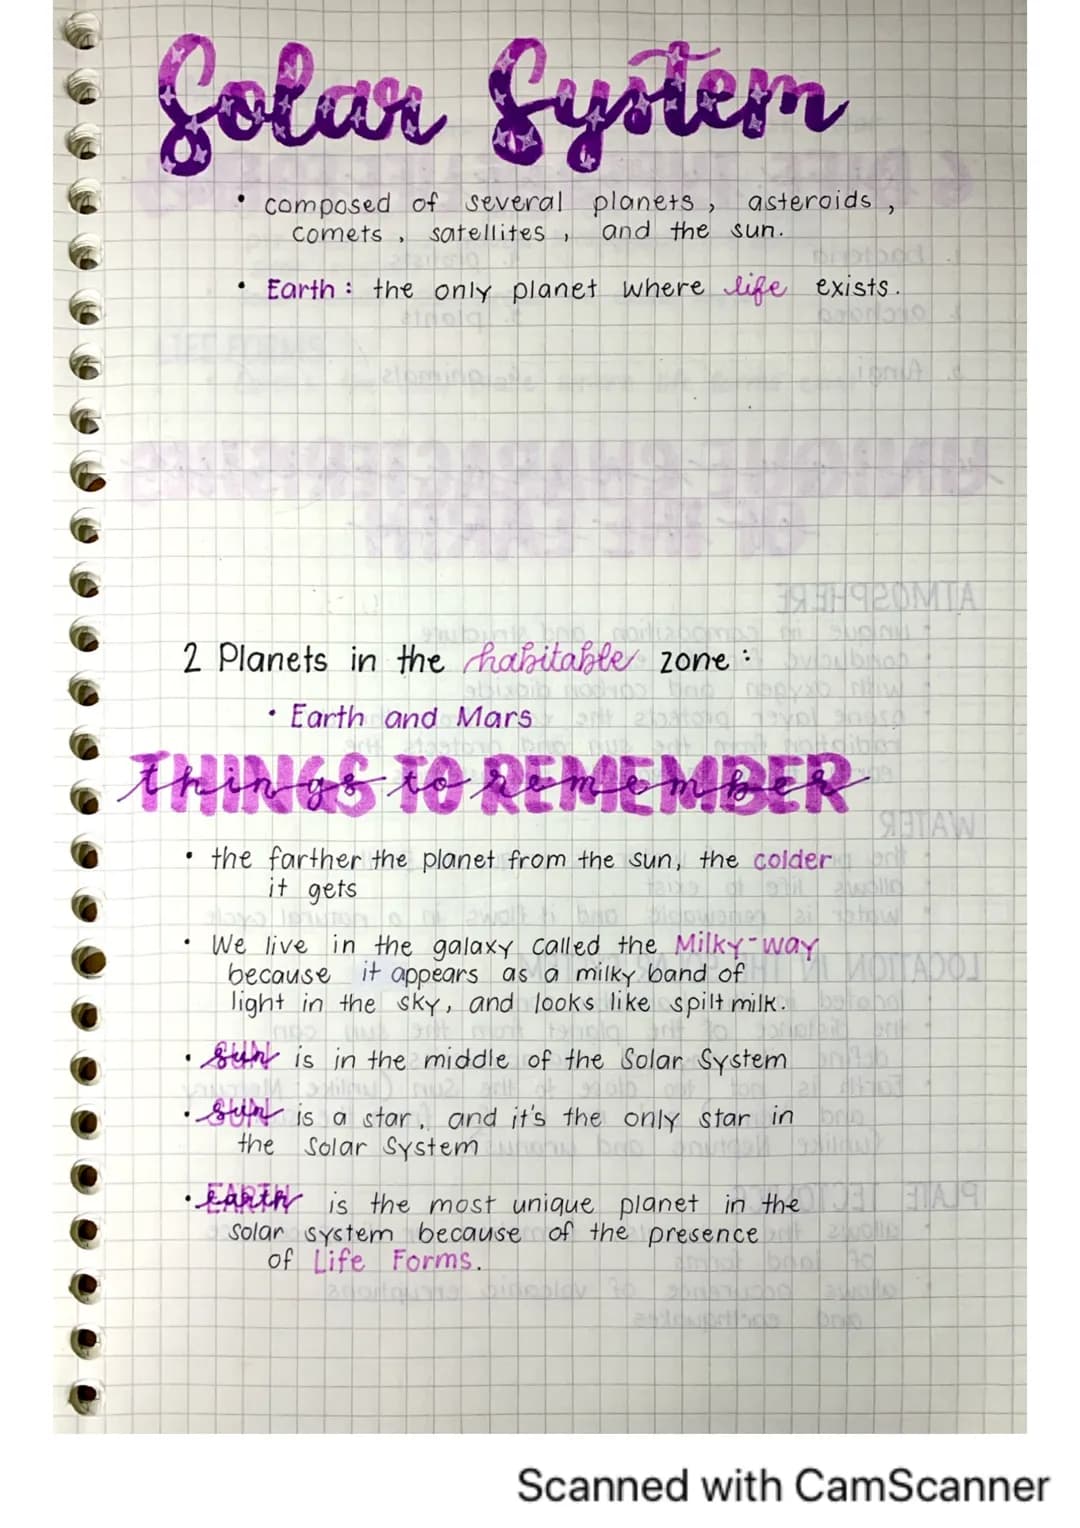 Solar System
• composed of several planets, asteroids,
comets, satellites, and the sun.
• Earth: the only planet where life exists.
2 Planets in the habitable zone:
• Earth and Mars
THINGS TO REMEMBER
things to remember
• the farther the planet from the sun, the colder
it gets
• We live in the galaxy called the Milky-way
because it appears as a milky band of
light in the sky, and looks like spilt milk.
• SUN is in the middle of the Solar System
• SUN is a star, and it's the only star in
the Solar System
• EARTH is the most unique planet in the
solar system because of the presence
of Life Forms.
Scanned with CamScanner